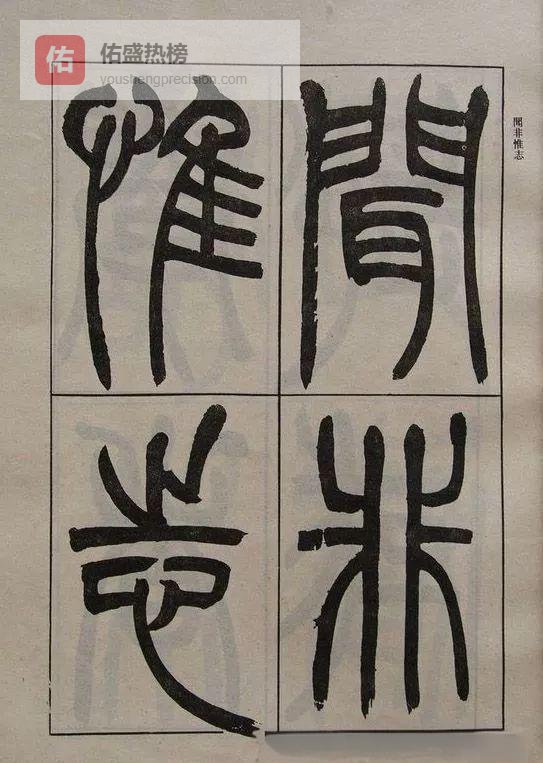 佑盛热榜
youshengprecision.com
佑
聞非
惟志
聞非惟志